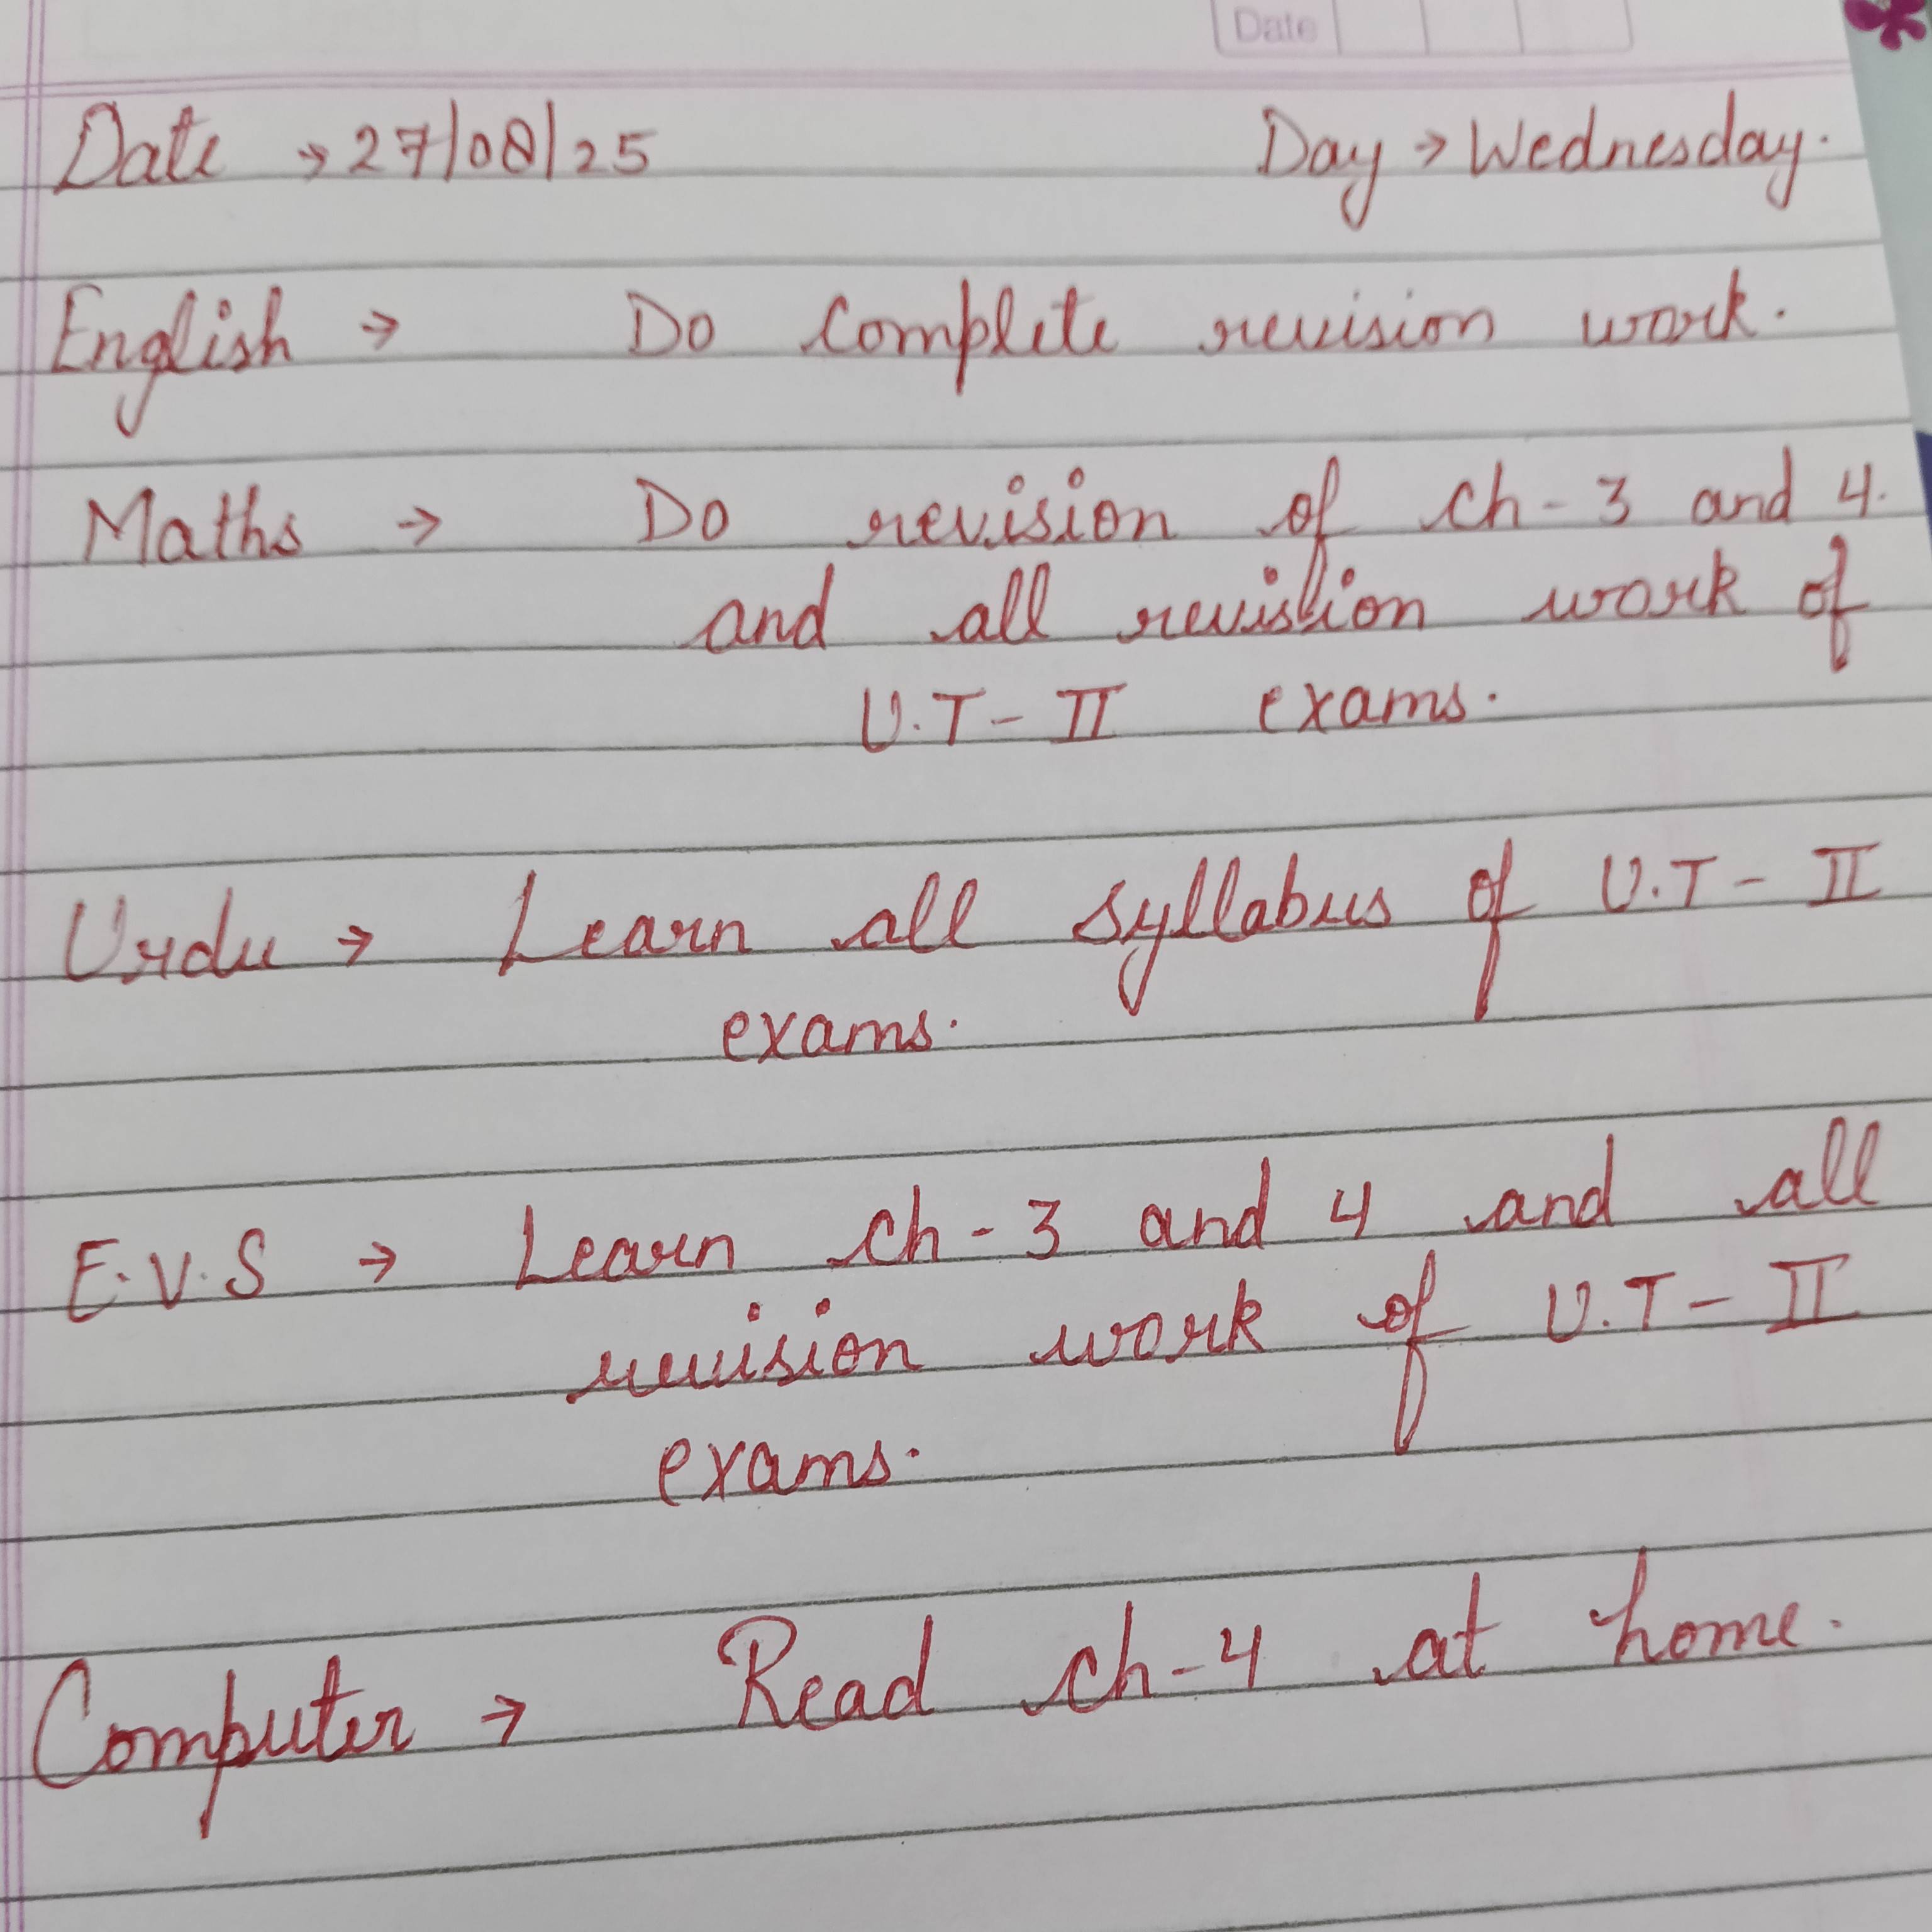 Date
Date → 27/08/25 Day → Wednesday.
English → Do complete revision work.
Maths → Do revision of ch - 3 and 4.
and all revision work of
U.T - II exams.
Urdu → Learn all syllabus of U.T - II
exams.
E.V.S → Learn ch - 3 and 4 and all
revision work of U.T - II
exams.
Computer → Read ch - 4 at home.